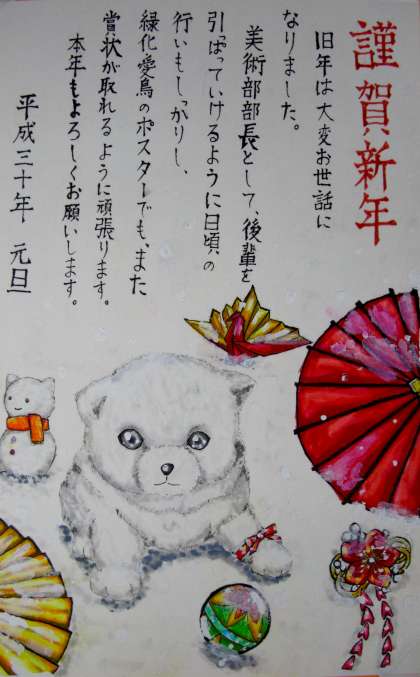 謹賀新年
旧年は大変お世話に
なりました。
美術部部長として、後輩を
引っぱっていけるように日頃の
行いもしっかりし、
緑化愛鳥のポスターでも、また
賞状が取れるように頑張ります。
本年もよろしくお願いします。
平成三十年 元旦